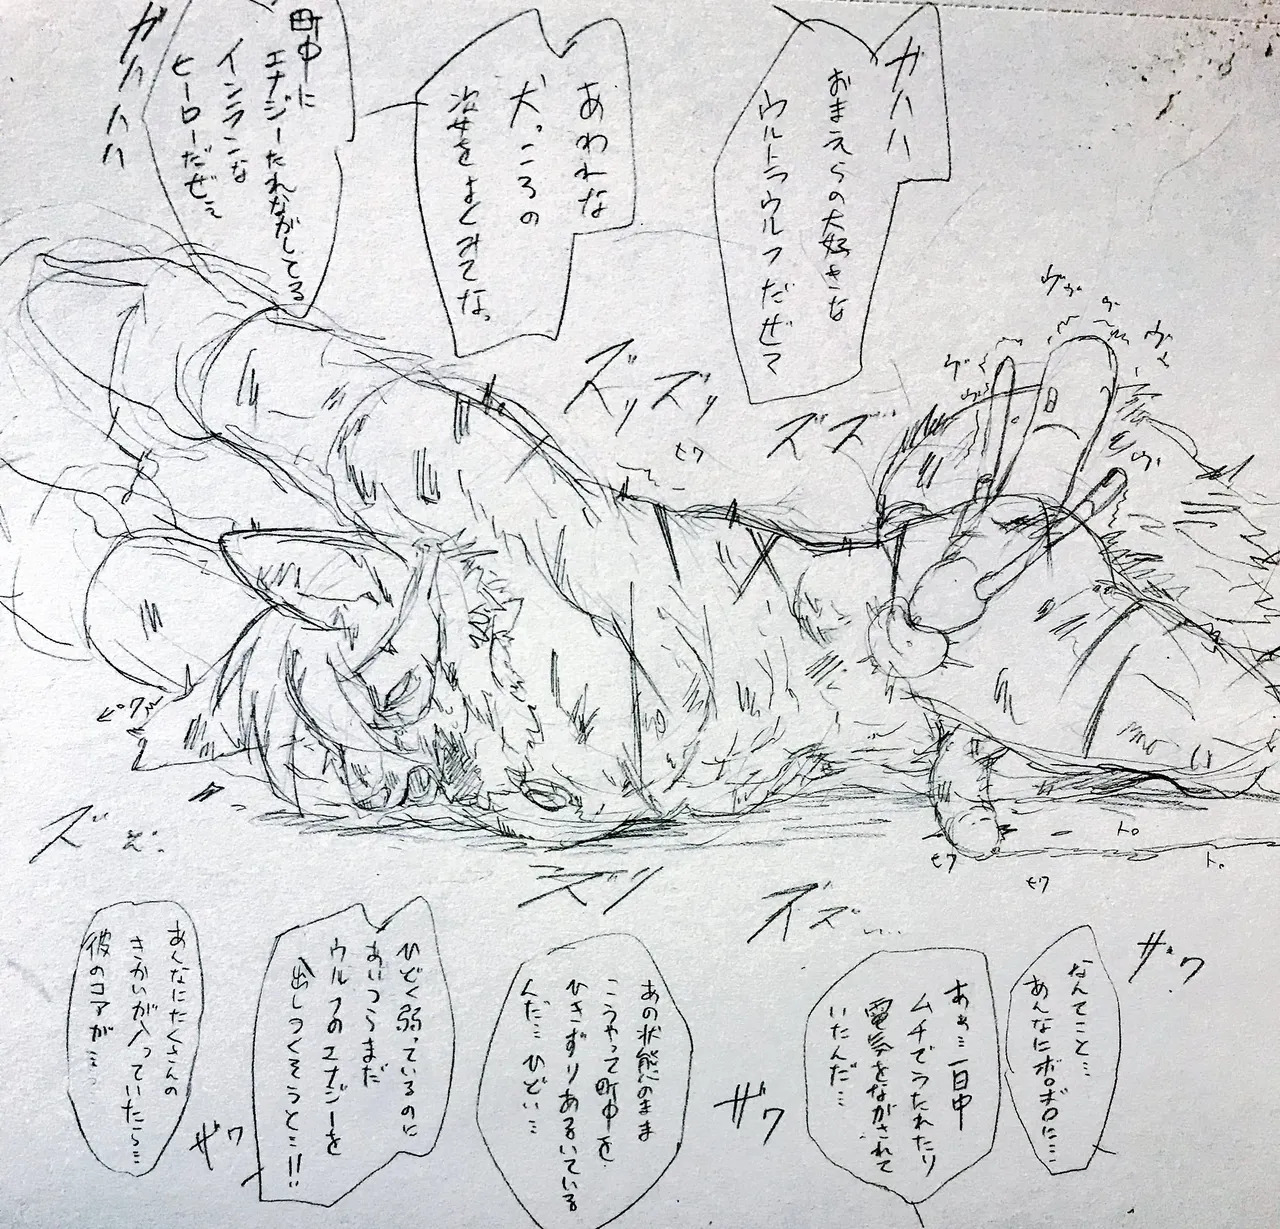 ガハハ
おまえらの大好きな
ウルトラウルフだぜて
あわれな
犬っころの
姿をよくみてな。
町中に
エナジーたれながしてる
インランな
ヒーローだぜぇ
ガハハハ
ヴヴヴ
ズリズリ
ズズ
ビクッ
ズ
ズリ
ズズ……
トロ
トロ
ヒク
ヒク
ザワ
なんてこと…
あんなにボロボロに…
あぁ…一日中
ムチでうたれたり
電気をながされて
いたんだ…
ザワ
あの状態のまま
こうやって町中を
ひきずりあるいている
んだ…ひどい…
ひどく弱っているのに
あいつらまだ
ウルフのエナジーを
出しつくそうと…!!
ザワ
あんなにたくさんの
きかいが入っていたら…
彼のコアが…